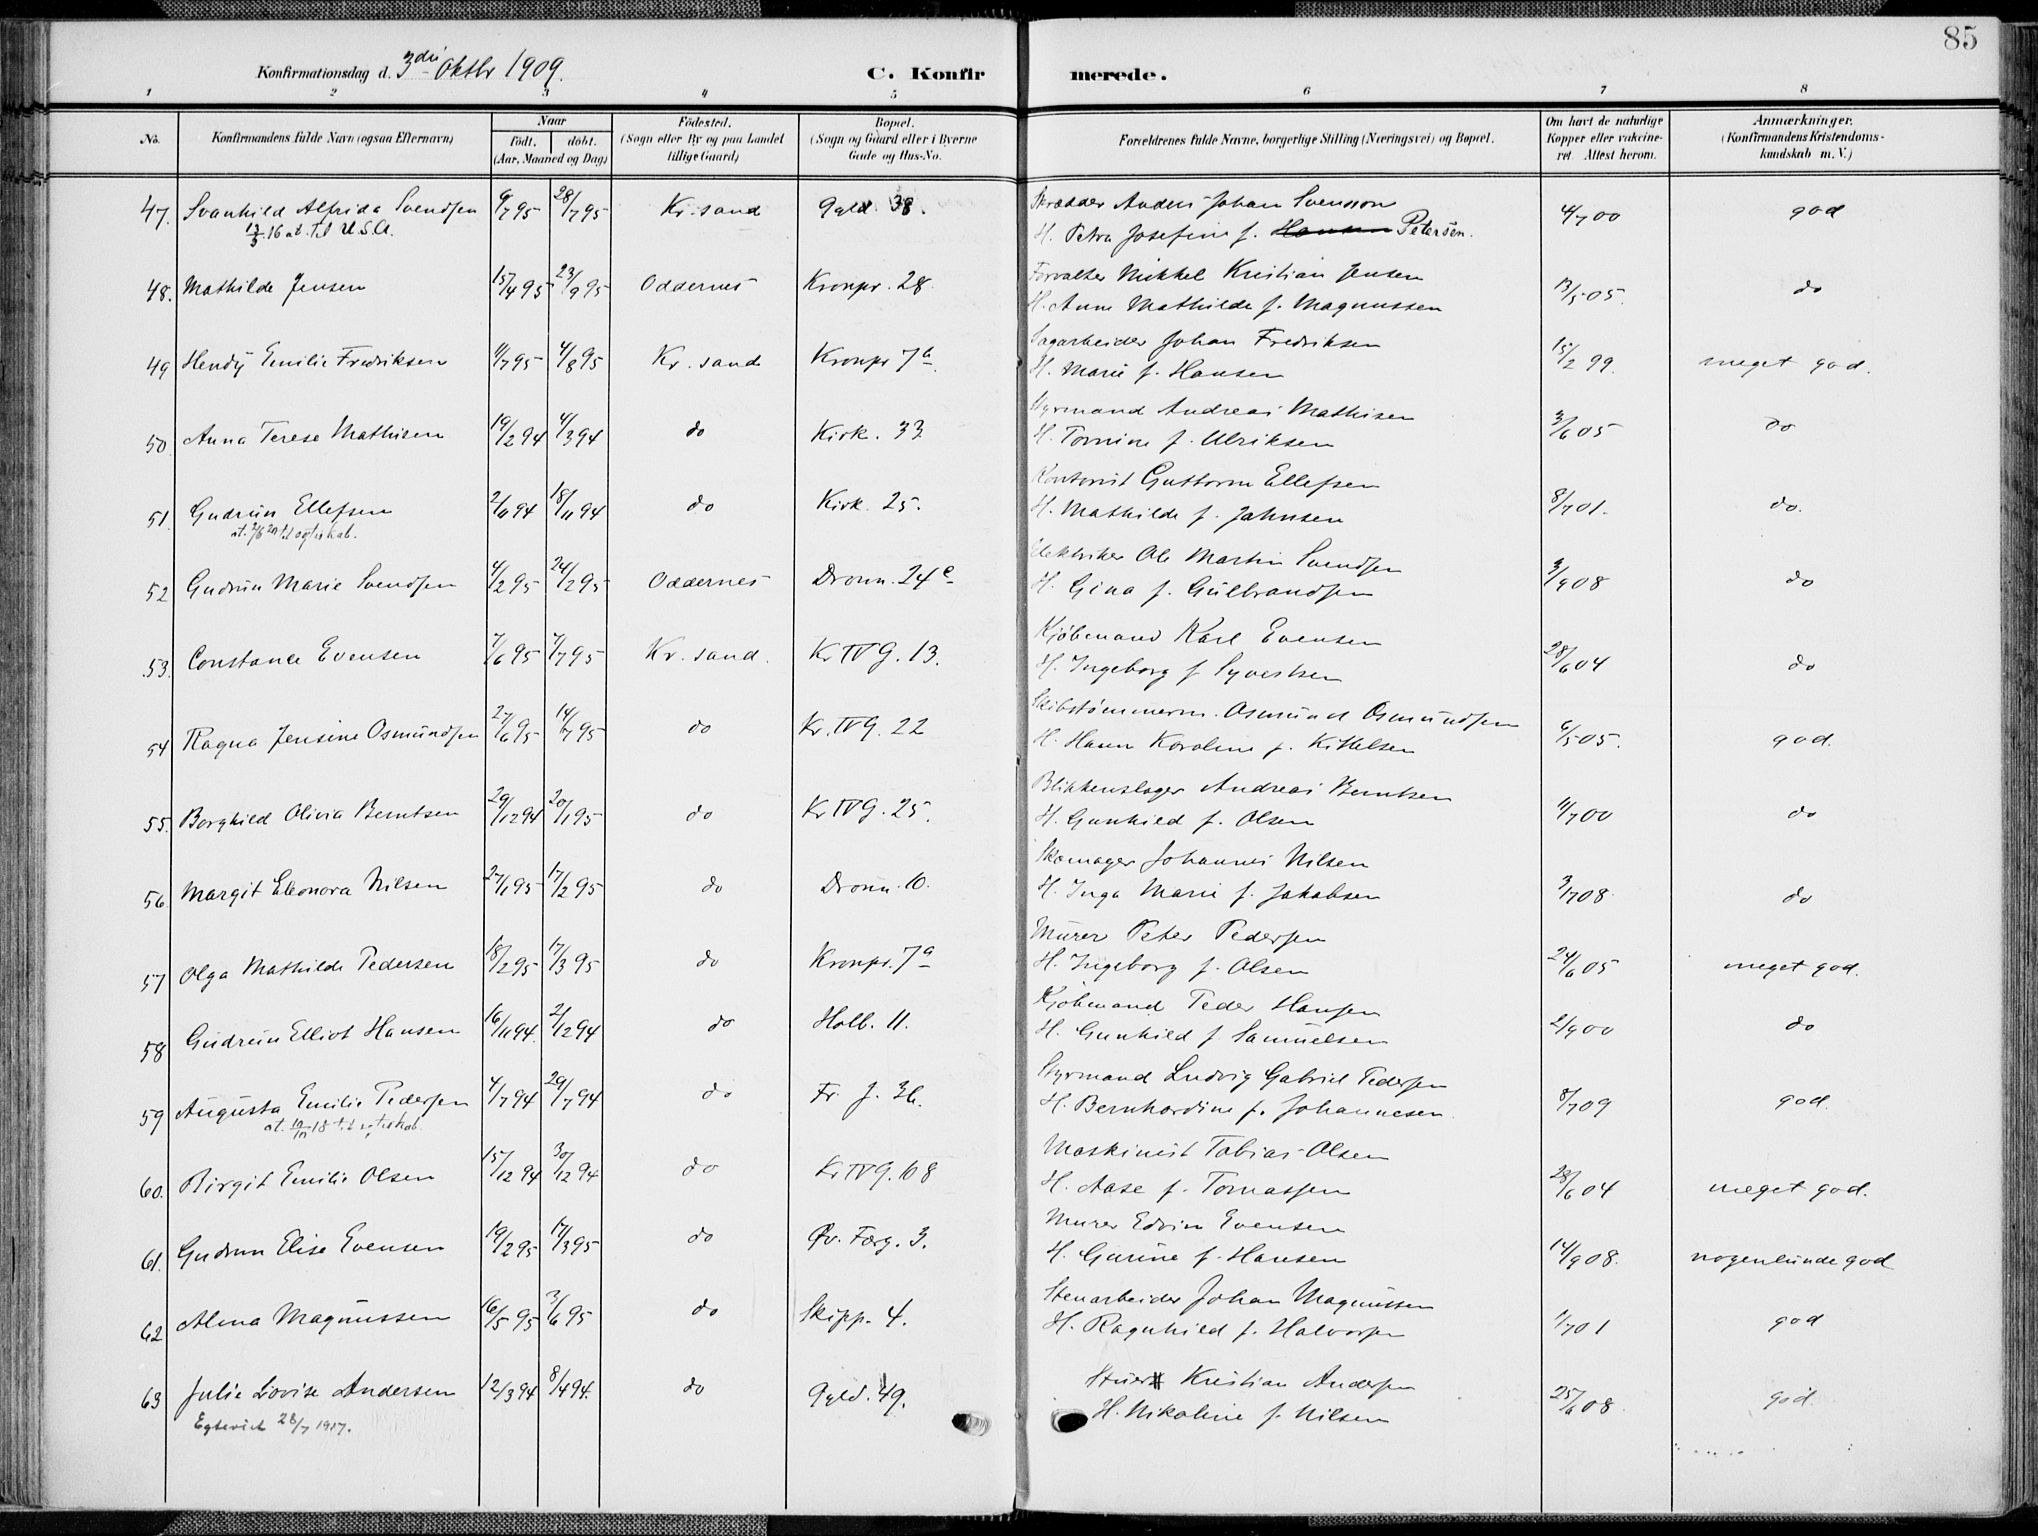 85
Konfirmationsdag d. 3die Oktbr 1909.
C. Konfirmerede.
1 2 3 4 5 6 7 8
No. Konfirmandens fulde Navn (ogsaa Efternavn) Naar Fødested. Bopæl. Forældrenes fulde Navne, borgerlige Stilling (Næringsvei) og Bopæl. Om havt de naturlige Anmærkninger.
født. døbt. (Sogn eller By og paa Landet (Sogn og Gaard eller i Byerne Kopper eller vakcine- (Konfirmandens Kristendoms-
(Aar, Maaned og Dag) tillige Gaard) Gade og Hus-No. ret Attest herom. kundskab m. V.)
47. Svanhild Alfrida Svendsen 9/7 95 28/7 95 Kr.sand Gyld. 38. Skrædder Anders Johan Svensson 4/7 00 god
13/5 16 at. til U.S.A. H. Petra Josefine f. Hansen Petersen.
48. Mathilde Jensen 15/4 95 23/9 95 Oddernes Kronpr. 28. Forvalter Mikkel Kristian Jensen 13/5 05. do
H. Anne Mathilde f. Magnussen
49 Hendy Emilie Fredriksen 11/7 95 4/8 95 Kr. sand Kronpr 7b. Sagarbeider Johan Fredriksen 15/2 99. meget god.
H. Marie f. Hansen
50 Anna Terese Mathisen 19/2 94 4/3 94 do Kirk. 33 Styrmand Andreas Mathisen 3/6 05 do
H. Tomine f. Ulriksen
51. Gudrun Ellefsen 2/11 94 18/11 94 do Kirk. 25. Kontorist Guttorm Ellefsen 8/7 01. do.
at. 2/6 20 til ægteskab. H. Mathilde f. Jahnsen
52 Gudrun Marie Svendsen 4/2 95 24/2 95 Oddernes Dronn. 24c Elektriker Ole Martin Svendsen 3/9 08 do
H. Gina f. Gulbrandsen
53. Constance Evensen 7/6 95 7/7 95 Kr. sand. Kr IV G. 13. Kjøbmand Karl Evensen 28/6 04 do
H. Ingeborg f Syvertsen
54 Ragna Jensine Osmundsen 27/6 95 14/7 95 do Kr. IV G. 22 Skibstømmerm. Osmund Osmundsen 6/5 05. god.
H. Hanna Karoline f. Kittelsen
55. Borghild Olivia Berntsen 29/12 94 20/1 95 do Kr IV G. 25. Blikkenslager Andreas Berntsen 11/7 00 do
H. Gunhild f. Olsen
56 Margit Eleonora Nilsen 27/1 95 17/2 95 do Dronn. 10. Skomager Johannes Nilsen 3/7 08 do
H. Inga Marie f. Jakobsen
57 Olga Mathilde Pedersen 18/2 95 17/3 95 do Kronpr. 7a Murer Peter Pedersen 24/6 05 meget god.
H. Ingeborg f. Olsen
58 Gudrun Elliot Hansen 16/11 94. 2/12 94 do Holb. 11. Kjøbmand Peder Hansen 2/9 00 do
H. Gunhild f Samuelsen
59 Augusta Emilie Pedersen 4/7 94 29/7 94 do Fr. J. 36. Styrmand Ludvig Gabriel Pedersen 8/7 09 god.
at. 10/10 18 til ægteskab. H. Bernhardine f. Johannesen.
60. Birgit Emilie Olsen 15/12 94 30/12 94 do Kr IV G. 108 Maskinist Tobias Olsen 28/6 04 meget god.
H. Aase f. Tomassen
61. Gudrun Elise Evensen 19/2 95 17/3 95 do Øv. Færg. 3. Murer Edvin Evensen 14/9 08. nogenlunde god
H. Gurine f. Hansen
62 Alma Magnussen 16/5 95 3/6 95 do Skipp. 4. Stenarbeider Johan Magnussen 1/7 01 god
H. Ragnhild f. Halvorsen
63 Julie Lovise Andersen 12/3 94 8/4 94. do Gyld. 49. Stuer Kristian Andersen 25/6 08. god.
Egteviet 28/7 1917. H. Nikoline f. Nilsen